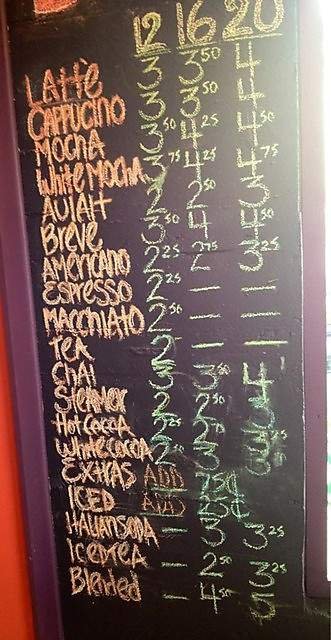 12 16 20
LATTE 3 3.50 4
CAPPUCINO 3 3.50 4
MOCHA 3.50 4.25 4.50
WHITE MOCHA 3.75 4.25 4.75
AU LAIT 2 2.50 3
BREVE 3.50 4 4.50
AMERICANO 2.25 2.75 3.25
ESPRESSO 2.25 — —
MACCHIATO 2.50 — —
TEA 2 — —
CHAI 3 3.50 4
STEAMER 2 2.50 3
HOT COCOA 2.25
WHITE COCOA 3
EXTRAS ADD .75¢
ICED ADD .25¢
ITALIAN SODA — 3 3.25
ICED TEA — 2.50 3.25
Blended — 4.50 5